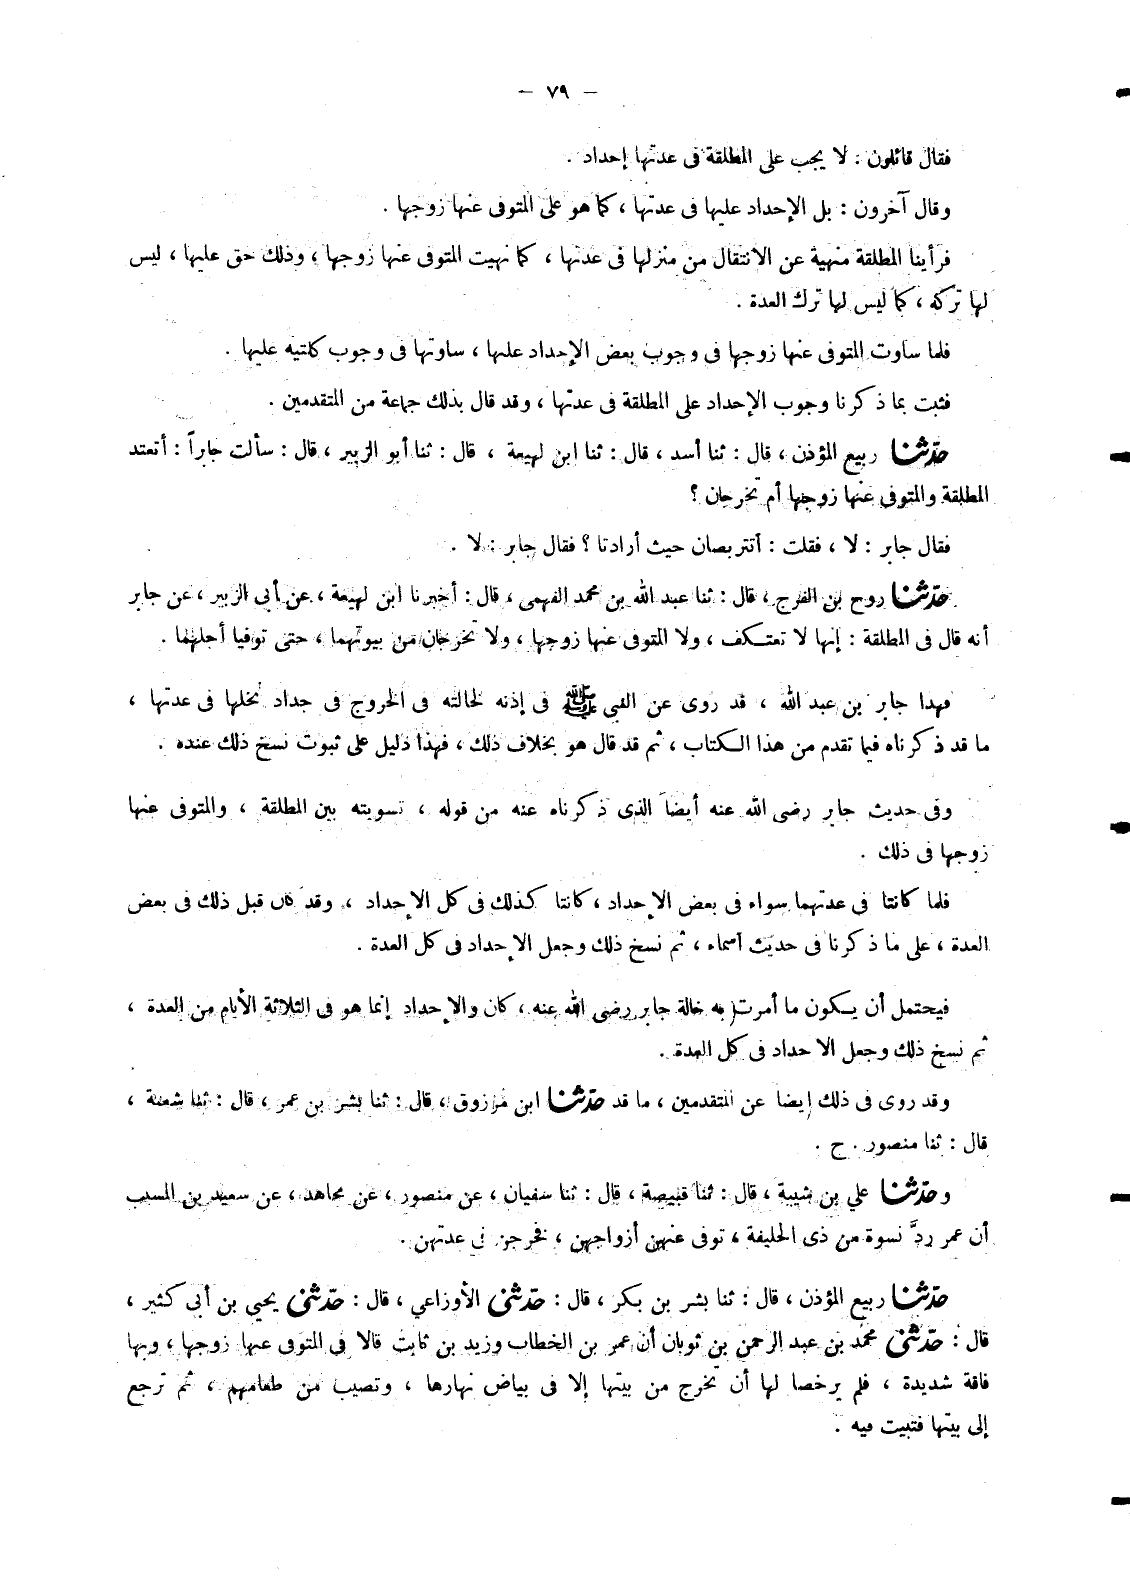 – ٧٩ –
فقال قائلون : لا يجب على المطلقة فى عدتها إحداد .
وقال آخرون : بل الإحداد عليها فى عدتها ، كما هو على المتوفى عنها زوجها .
فرأينا المطلقة منهية عن الانتقال من منزلها فى عدتها ، كما نهيت المتوفى عنها زوجها ، وذلك حق عليها ، ليس
لها تركه ، كما ليس لها ترك العدة .
فلما ساوت المتوفى عنها زوجها فى وجوب بعض الإحداد عليها ، ساوتها فى وجوب كليته عليها .
فثبت بما ذكرنا وجوب الإحداد على المطلقة فى عدتها ، وقد قال بذلك جماعة من المتقدمين .
حدّثنا ربيع المؤذن ، قال : ثنا أسد ، قال : ثنا ابن لهيعة ، قال : ثنا أبو الزبير ، قال : سألت جابراً : أتعتد
المطلقة والمتوفى عنها زوجها أم تخرجان ؟
فقال جابر : لا ، فقلت : أتتربصان حيث أرادتا ؟ فقال جابر : لا .
حدّثنا روح بن الفرج ، قال : ثنا عبد الله بن محمد الفهمى ، قال : أخبرنا ابن لهيعة ، عن أبى الزبير ، عن جابر
أنه قال فى المطلقة : إنها لا تعتكف ، ولا المتوفى عنها زوجها ، ولا تخرجان من بيوتهما ، حتى توفيا أجلهما .
فهذا جابر بن عبد الله ، قد روى عن النبى ﷺ فى إذنه لخالته فى الخروج فى جداد نخلها فى عدتها ،
ما قد ذكرناه فيما تقدم من هذا الكتاب ، ثم قد قال هو بخلاف ذلك ، فهذا دليل على ثبوت نسخ ذلك عنده .
وفى حديث جابر رضى الله عنه أيضاً الذى ذكرناه عنه من قوله ، تسويته بين المطلقة ، والمتوفى عنها
زوجها فى ذلك .
فلما كانتا فى عدتهما سواء فى بعض الإحداد ، كانتا كذلك فى كل الإحداد ، وقد كان قبل ذلك فى بعض
العدة ، على ما ذكرنا فى حديث أسماء ، ثم نسخ ذلك وجعل الإحداد فى كل العدة .
فيحتمل أن يكون ما أمرت به خالة جابر رضى الله عنه ، كان والإحداد إنما هو فى الثلاثة الأيام من العدة ،
ثم نسخ ذلك وجعل الاحداد فى كل العدة .
وقد روى فى ذلك إيضا عن المتقدمين ، ما قد حدّثنا ابن مرزوق ، قال : ثنا بشر بن عمر ، قال : ثنا شعبة ،
قال : ثنا منصور . ح .
وحدّثنا علي بن شيبة ، قال : ثنا قبيصة ، قال : ثنا سفيان ، عن منصور ، عن مجاهد ، عن سعيد بن المسيب
أن عمر ردَّ نسوة من ذى الحليفة ، توفى عنهن أزواجهن ، فخرجن فى عدتهن .
حدّثنا ربيع المؤذن ، قال : ثنا بشر بن بكر ، قال : حدّثنى الأوزاعي ، قال : حدّثنى يحيي بن أبى كثير ،
قال : حدّثنى محمد بن عبد الرحمن بن ثوبان أن عمر بن الخطاب وزيد بن ثابت قالا فى المتوفى عنها زوجها ، وبها
فاقة شديدة ، فلم يرخصا لها أن تخرج من بيتها إلا فى بياض نهارها ، وتصيب من طعامهم ، ثم ترجع
إلى بيتها فتبيت فيه .